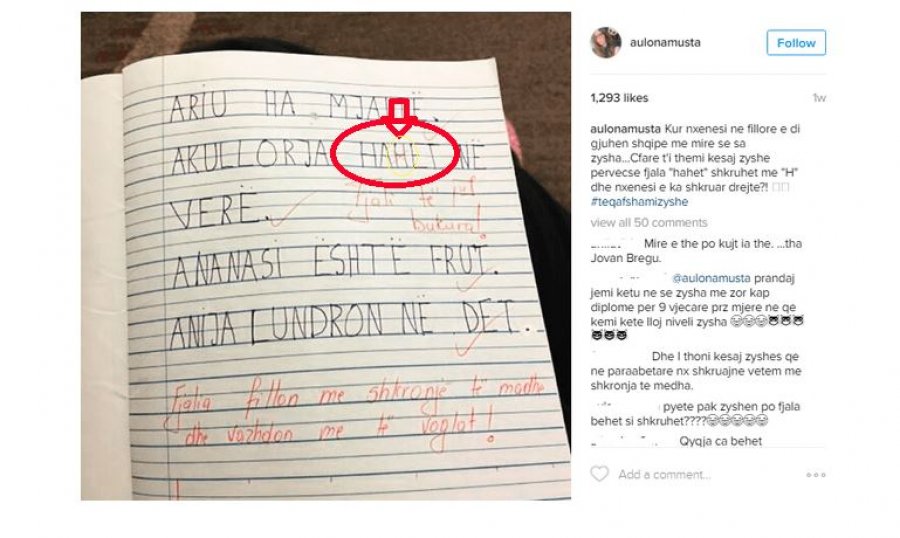 ARIU HA MJALTË.
AKULLORJA HAHET NË
VERË.
Fjali të plf
bukura!
ANANASI ËSHTË FRUT.
ANIJA LUNDRON NË DET.
Fjalia fillon me shkronjë të madhe
dhe vazhdon me të voglat!
aulonamusta
Follow
1,293 likes
1w
aulonamusta Kur nxenesi ne fillore e di
gjuhen shqipe me mire se sa
zysha...Cfare t'i themi kesaj zyshe
pervecse fjala "hahet" shkruhet me "H"
dhe nxenesi e ka shkruar drejte?!
#teqafshamizyshe
view all 50 comments
Mire e the po kujt ia the. ...tha
Jovan Bregu.
@aulonamusta prandaj
jemi ketu ne se zysha me zor kap
diplome per 9 vjecare prz mjere ne qe
kemi kete lloj niveli zysha 😂😂😂😈😈😈
😈😈😈
Dhe I thoni kesaj zyshes qe
ne paraabetare nx shkruajne vetem me
shkronja te medha.
pyete pak zyshen po fjala
behet si shkruhet????😂😂😂😂😂
Qyqja ca behet
Add a comment...